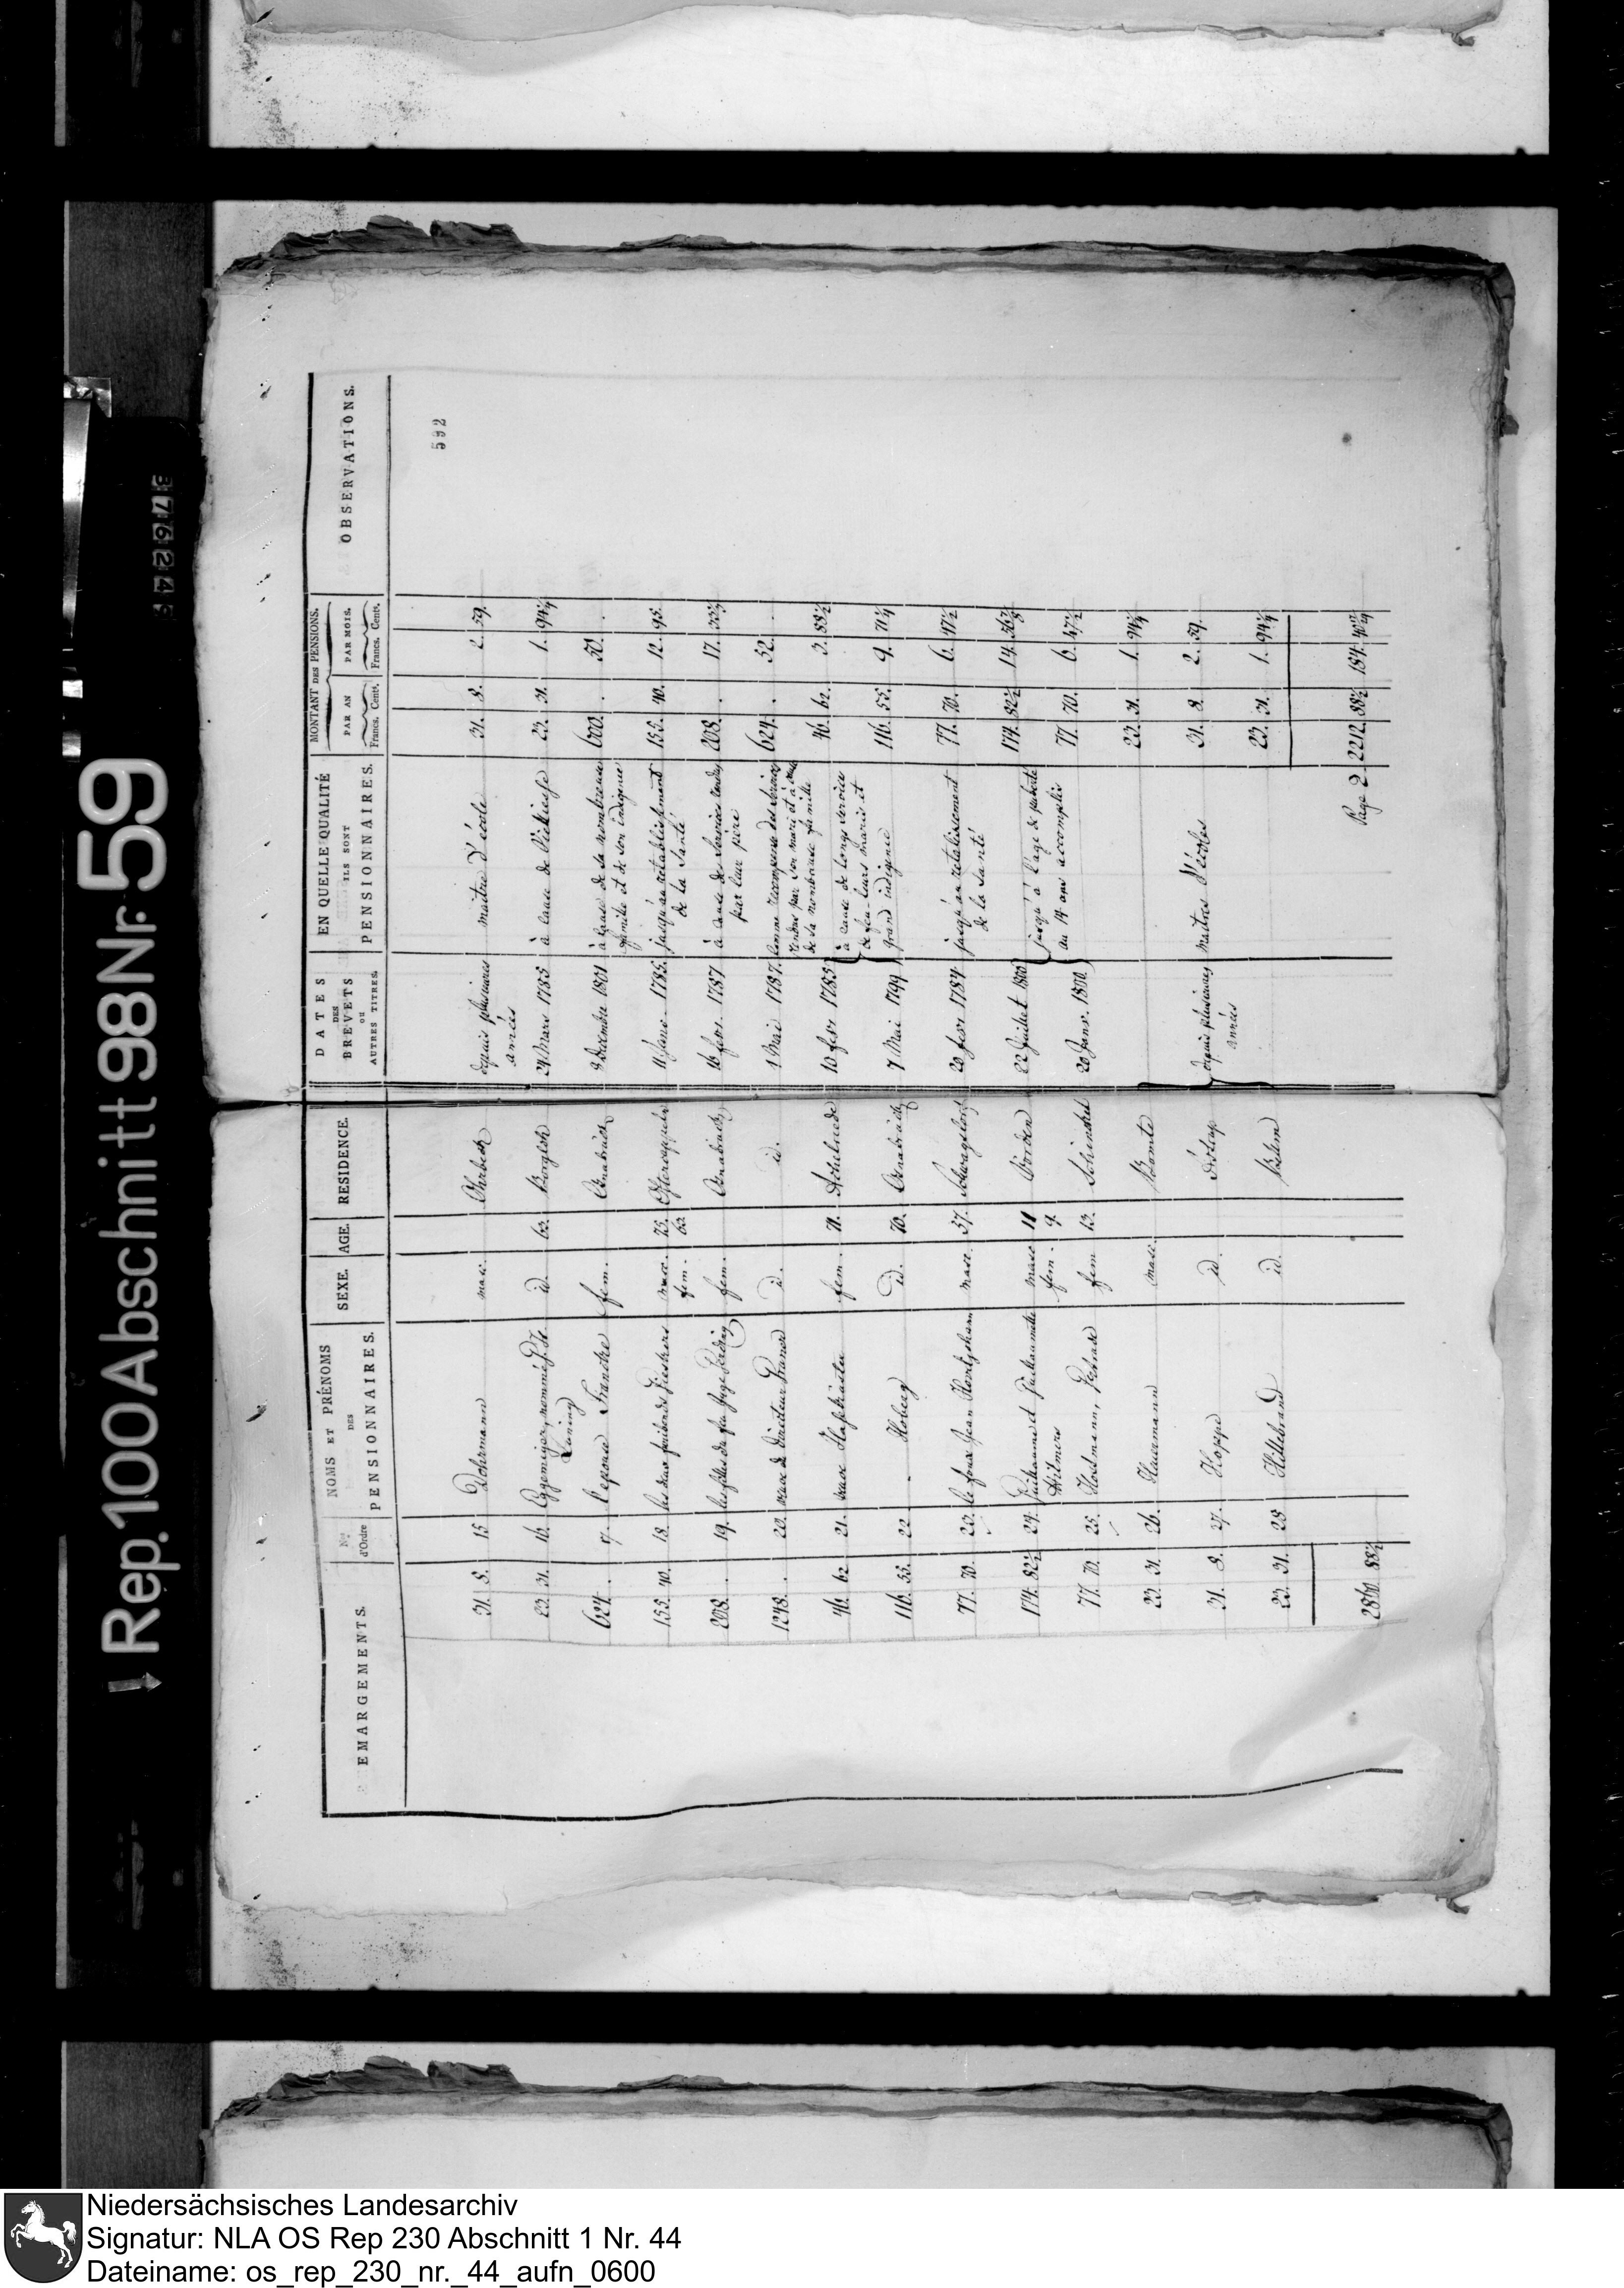 Rep. 100 Abschnitt 98 Nr. 59
376243
592
EMARGEMENTS.
Nos d'Ordre
NOMS ET PRÉNOMS DES PENSIONNAIRES.
SEXE.
AGE.
RESIDENCE.
DATES DES BREVETS OU AUTRES TITRES.
EN QUELLE QUALITÉ ILS SONT PENSIONNAIRES.
MONTANT DES PENSIONS.
PAR AN
Francs. Cents.
PAR MOIS.
Francs. Cents.
OBSERVATIONS.
31. 8. 15 Dohrmann masc. Ohrbeck depuis plusieures années maitre d'école 31. 8. 2. 59.
23. 31. 16. id. 63. Borgloh 24 Mars 1783 à cause de 23. 31. 1. 94¼
624. . 7. l'epouse Francke fem. Osnabrück 9 Decembre 1801 à cause de sa nombreuse famille et de son indigence 600. . 50. .
155. 40. 18. les deux masc. fem. 73. 62 11 Janv. 1785. jusqu'au retablissement de la Santé 155. 40. 12. 95.
208. . 19. les filles du feu Juge fem. Osnabrück 16 fevr. 1787 à cause des Services rendus par leur père 208. . 17. 33⅓
1248. . 20. veuve du Directeur id. id. 1 Mai 1787. comme recompense des Services rendus par son mari et à cause de sa nombreuse famille 624. . 52. .
46. 62 21. veuve fem. 71. 10 fevr 1783 à cause de longs services de feu leurs maris et grand indigence 46. 62. 3. 88½
116. 55. 22 - Hoberg id. 70. Osnabrück 7 Mai 1799 116. 55. 9. 71¼
77. 70. 23. Jean masc. 37. Schwagstorf 20 fevr 1784 jusqu'au retablissement de la Santé 77. 70. 6. 47½
174. 82½ 24. et Hilmers masc fem. 11 9. Vörden 22 Juillet 1800 jusqu'à l'age de au 14 ans accomplis 174. 82½ 14. 56⅞
77. 70. 25. Horstmann, fem 13. Schinckel 20 Janv. 1800. 77. 70. 6. 47½
23. 31. 26. Hauermann masc. Bomte depuis plusieures années maitres d'écoles 23. 31. 1. 94¼
31. 8. 27. Hoppe id. 31. 8. 2. 59.
23. 31. 28 Hillebrand id. Belem 23. 31. 1. 94¼
2860. 88½ Page 2. 2212. 88½ 184.
Niedersächsisches Landesarchiv
Signatur: NLA OS Rep 230 Abschnitt 1 Nr. 44
Dateiname: os_rep_230_nr._44_aufn_0600